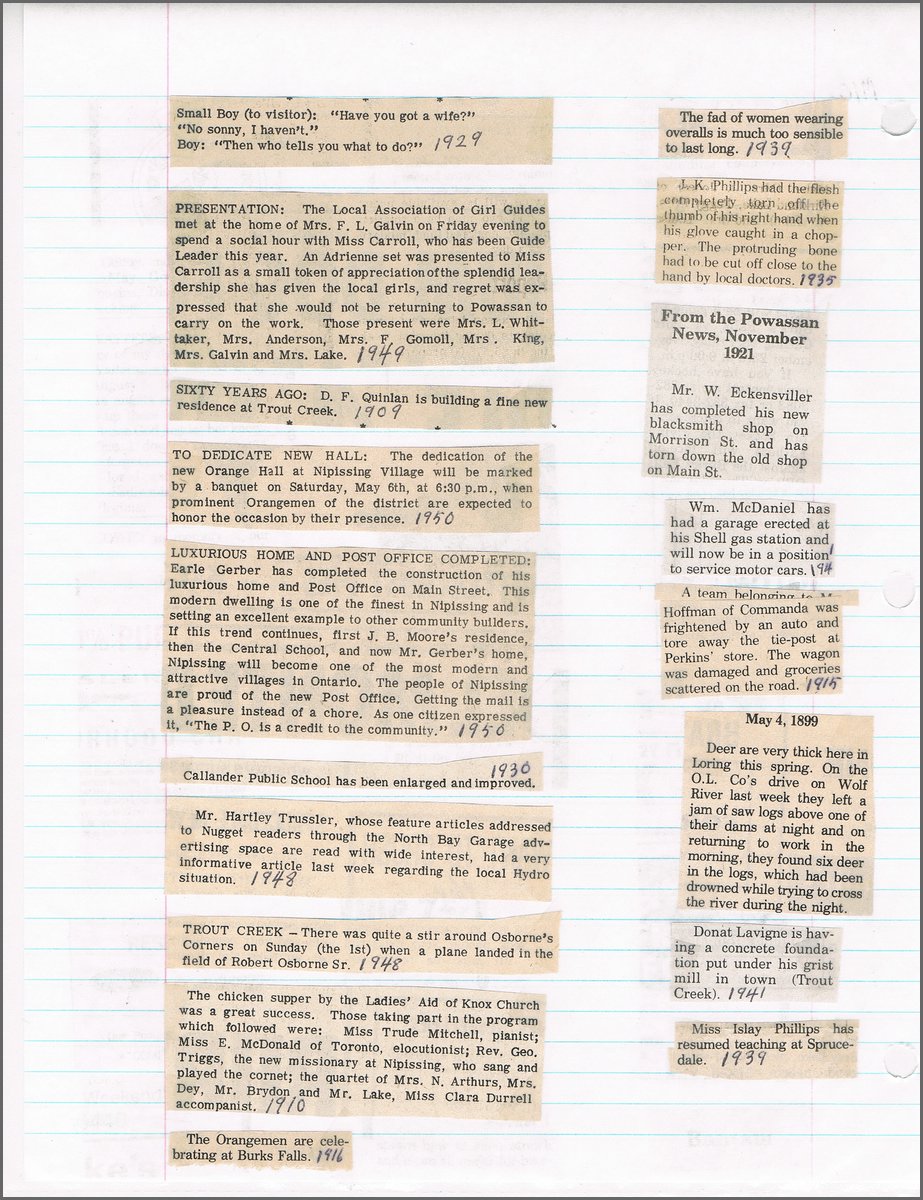 Small Boy (to visitor): "Have you got a wife?"
"No sonny, I haven't."
Boy: "Then who tells you what to do?" 1929
PRESENTATION: The Local Association of Girl Guides
met at the home of Mrs. F. L. Galvin on Friday evening to
spend a social hour with Miss Carroll, who has been Guide
Leader this year. An Adrienne set was presented to Miss
Carroll as a small token of appreciation of the splendid lea-
dership she has given the local girls, and regret was ex-
pressed that she would not be returning to Powassan to
carry on the work. Those present were Mrs. L. Whit-
taker, Mrs. Anderson, Mrs. F. Gomoll, Mrs. King,
Mrs. Galvin and Mrs. Lake. 1949
SIXTY YEARS AGO: D. F. Quinlan is building a fine new
residence at Trout Creek. 1909
TO DEDICATE NEW HALL: The dedication of the
new Orange Hall at Nipissing Village will be marked
by a banquet on Saturday, May 6th, at 6:30 p.m., when
prominent Orangemen of the district are expected to
honor the occasion by their presence. 1950
LUXURIOUS HOME AND POST OFFICE COMPLETED:
Earle Gerber has completed the construction of his
luxurious home and Post Office on Main Street. This
modern dwelling is one of the finest in Nipissing and is
setting an excellent example to other community builders.
If this trend continues, first J. B. Moore's residence,
then the Central School, and now Mr. Gerber's home,
Nipissing will become one of the most modern and
attractive villages in Ontario. The people of Nipissing
are proud of the new Post Office. Getting the mail is
a pleasure instead of a chore. As one citizen expressed
it, "The P. O. is a credit to the community." 1950
1930
Callander Public School has been enlarged and improved.
Mr. Hartley Trussler, whose feature articles addressed
to Nugget readers through the North Bay Garage adv-
ertising space are read with wide interest, had a very
informative article last week regarding the local Hydro
situation. 1948
TROUT CREEK – There was quite a stir around Osborne's
Corners on Sunday (the 1st) when a plane landed in the
field of Robert Osborne Sr. 1948
The chicken supper by the Ladies' Aid of Knox Church
was a great success. Those taking part in the program
which followed were: Miss Trude Mitchell, pianist;
Miss E. McDonald of Toronto, elocutionist; Rev. Geo.
Triggs, the new missionary at Nipissing, who sang and
played the cornet; the quartet of Mrs. N. Arthurs, Mrs.
Dey, Mr. Brydon and Mr. Lake, Miss Clara Durrell
accompanist. 1910
The Orangemen are cele-
brating at Burks Falls. 1916
The fad of women wearing
overalls is much too sensible
to last long. 1939
J. K. Phillips had the flesh
completely torn off the
thumb of his right hand when
his glove caught in a chop-
per. The protruding bone
had to be cut off close to the
hand by local doctors. 1935
From the Powassan
News, November
1921
Mr. W. Eckensviller
has completed his new
blacksmith shop on
Morrison St. and has
torn down the old shop
on Main St.
Wm. McDaniel has
had a garage erected at
his Shell gas station and
will now be in a position
to service motor cars. 194
A team belonging to
Hoffman of Commanda was
frightened by an auto and
tore away the tie-post at
Perkins' store. The wagon
was damaged and groceries
scattered on the road. 1915
May 4, 1899
Deer are very thick here in
Loring this spring. On the
O.L. Co's drive on Wolf
River last week they left a
jam of saw logs above one of
their dams at night and on
returning to work in the
morning, they found six deer
in the logs, which had been
drowned while trying to cross
the river during the night.
Donat Lavigne is hav-
ing a concrete founda-
tion put under his grist
mill in town (Trout
Creek). 1941
Miss Islay Phillips has
resumed teaching at Spruce-
dale. 1939